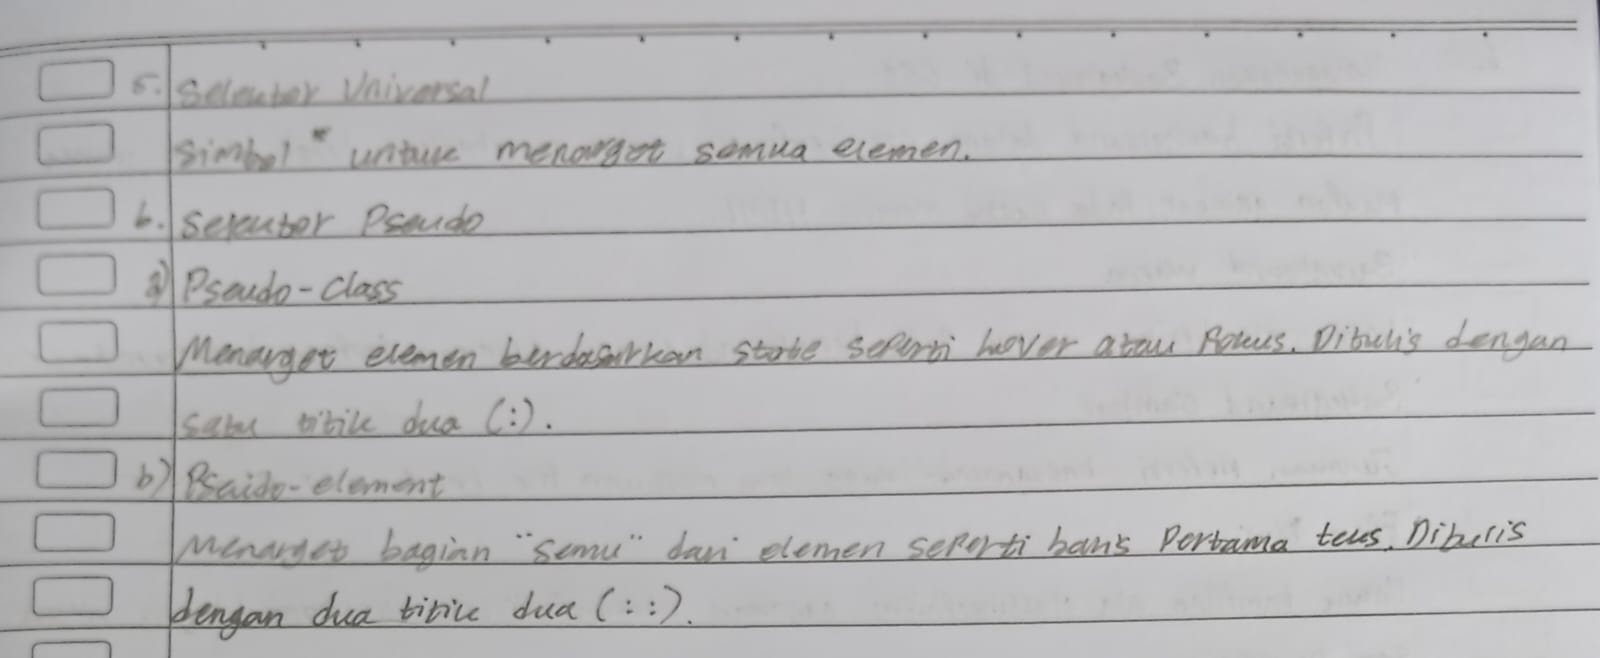 5. Selektor Universal
Simbol * untuk menarget semua elemen.
6. Selektor Pseudo
a) Pseudo-Class
Menarget elemen berdasarkan state seperti hover atau Fokus. Ditulis dengan
satu titik dua (:).
b) Pseido-element
Menarget bagian "semu" dari elemen seperti baris Pertama teks. Ditulis
dengan dua titik dua (::).